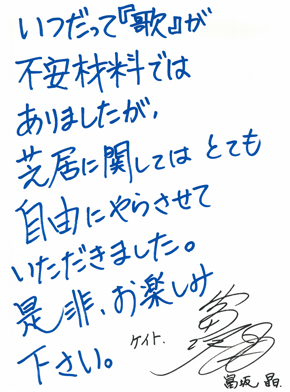 いつだって『歌』が
不安材料では
ありましたが、
芝居に関しては とても
自由にやらさせて
いただきました。
是非、お楽しみ
下さい。
ケイト.